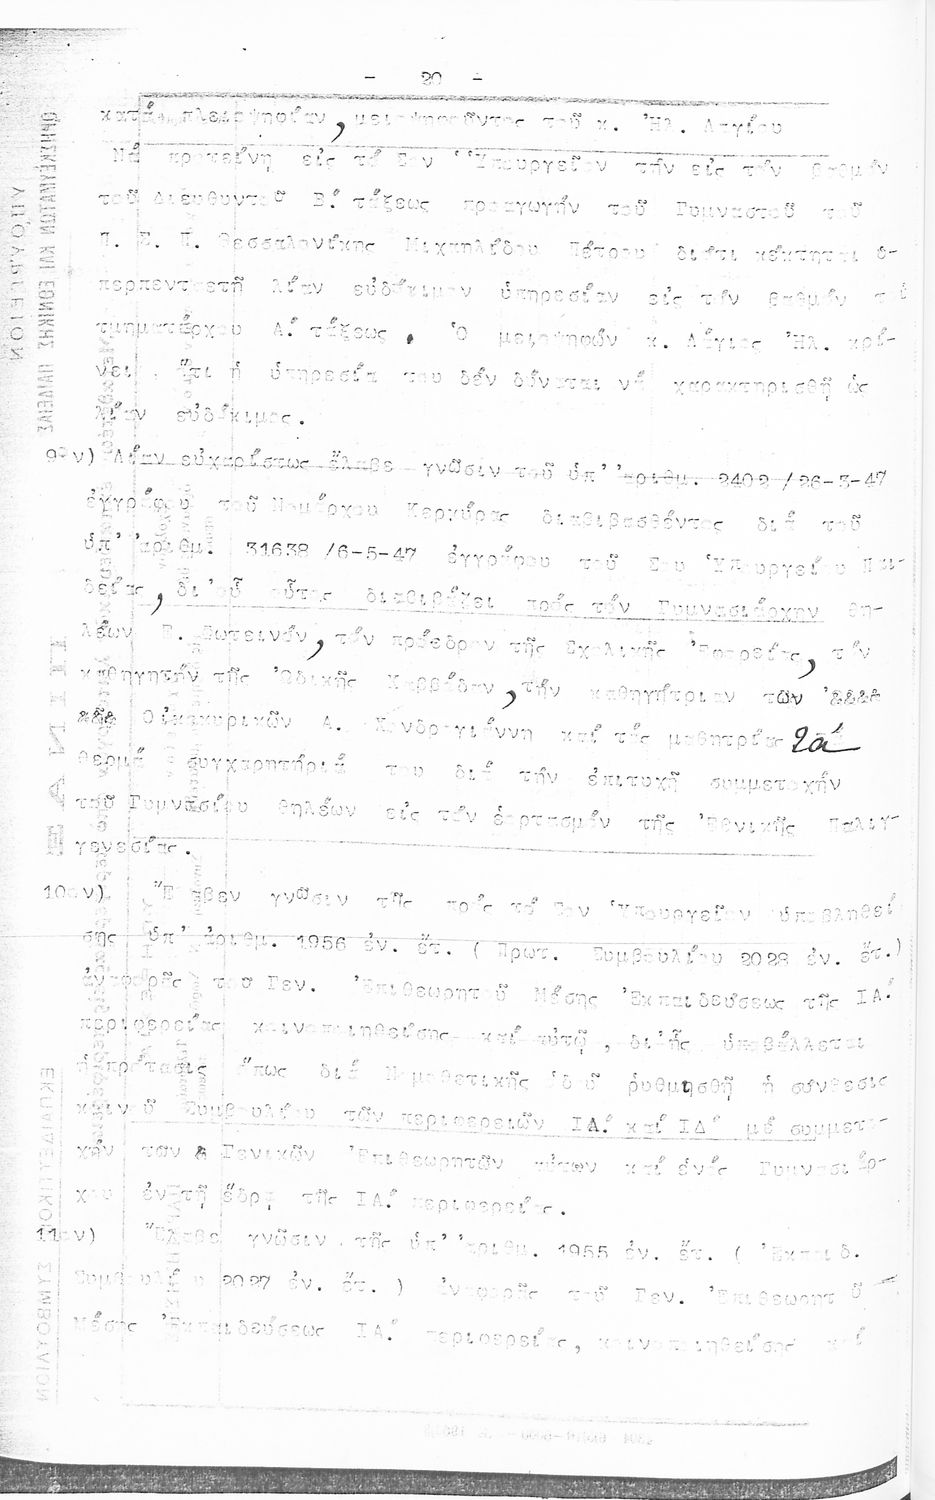 - 20 -
κατά πλειοψηφίαν, μειοψηφοῦντος τοῦ κ. Ἠλ. Λαγίου
Νά προτείνῃ εἰς τό Σον Ὑπουργεῖον τήν εἰς τόν βαθμόν
τοῦ διευθυντοῦ Β΄ τάξεως προαγωγήν τοῦ Γυμναστοῦ τοῦ
Π. Σ. Π. Θεσσαλονίκης Μιχαηλίδου Πέτρου διότι κέκτηται ὑ-
περπενταετῆ λίαν εὐδόκιμον ὑπηρεσίαν εἰς τόν βαθμόν τοῦ
τμηματάρχου Α΄ τάξεως. Ὁ μειοψηφῶν κ. Λάγιος Ἠλ. κρί-
νει ὅτι ἡ ὑπηρεσία του δέν δύναται νά χαρακτηρισθῇ ὡς
λίαν εὐδόκιμος.
9ον) Λίαν εὐχαρίστως ἔλαβε γνῶσιν τοῦ ὑπ' ἀριθμ. 2402/26-3-47
ἐγγράφου τοῦ Νομάρχου Κερκύρας διαβιβασθέντος διά τοῦ
ὑπ' ἀριθμ. 31638/6-5-47 ἐγγράφου τοῦ Σου Ὑπουργείου Παι-
δείας, δι' οὗ οὗτος διαβιβάζει πρός τόν Γυμνασιάρχην θη-
λέων Ε. Φωτεινόν, τόν πρόεδρον τῆς Σχολικῆς Ἐφορείας, τόν
καθηγητήν τῆς Ὠδικῆς Καββάδαν, τήν καθηγήτριαν τῶν &&&&
&&& Οἰκοκυρικῶν Α. Χονδρογιάννη καί τάς μαθητρίας τά
θερμά συγχαρητήριά του διά τήν ἐπιτυχῆ συμμετοχήν
τοῦ Γυμνασίου θηλέων εἰς τόν ἑορτασμόν τῆς Ἐθνικῆς Παλιγ-
γενεσίας.
10ον) Ἔλαβεν γνῶσιν τῆς πρός τό Σον Ὑπουργεῖον ὑποβληθεί
σης ὑπ' ἀριθμ. 1956 ἐν. ἔτ. ( Πρωτ. Συμβουλίου 2028 ἐν. ἔτ.)
ἀναφορᾶς τοῦ Γεν. Ἐπιθεωρητοῦ Μέσης Ἐκπαιδεύσεως τῆς ΙΑ΄
περιφερείας κοινοποιηθείσης καί αὐτῷ, δι' ἧς ὑποβάλλεται
ἡ πρότασις ὅπως διά Νομοθετικῆς ὁδοῦ ρυθμισθῇ ἡ σύνθεσις
κοινοῦ Συμβουλίου τῶν περιφερειῶν ΙΑ΄ καί ΙΔ΄ μέ συμμετο-
χήν τῶν & Γενικῶν Ἐπιθεωρητῶν αὐτῶν καί ἑνός Γυμνασιάρ-
χου ἐν τῇ ἕδρᾳ τῆς ΙΑ΄ περιφερείας.
11ον) Ἔλαβε γνῶσιν τῆς ὑπ' ἀριθμ. 1955 ἐν. ἔτ. ( Ἐκπαιδ.
Συμβουλίου 2027 ἐν. ἔτ. ) ἀναφορᾶς τοῦ Γεν. Ἐπιθεωρητοῦ
Μέσης Ἐκπαιδεύσεως ΙΑ΄ περιφερείας, κοινοποιηθείσης καί